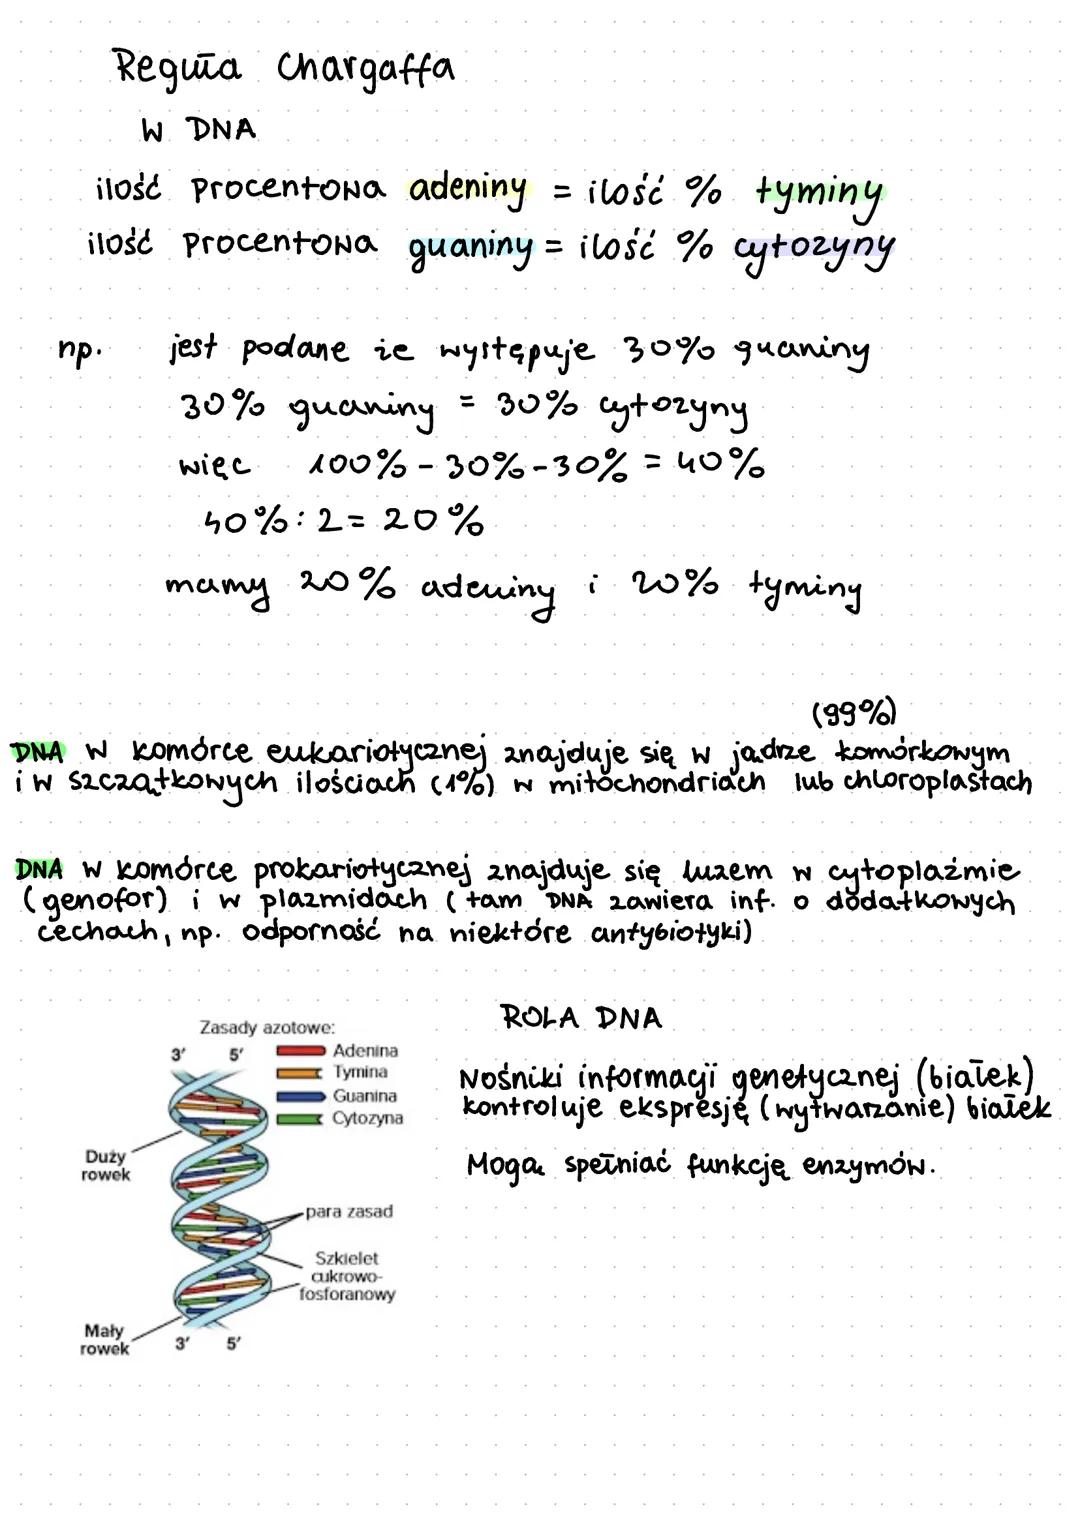 Reguła Chargaffa
W DNA
ilość procentowa adeniny = ilość % tyminy
ilość procentowa guaniny = ilość % cytozyny
np. jest podane że występuje 30% guaniny
30% guaniny = 30% cytozyny
więc 100% - 30% - 30% = 40%
40% : 2 = 20%
mamy 20% adeniny i 20% tyminy
(99%)
DNA w komórce eukariotycznej znajduje się w jądrze komórkowym
i w szczątkowych ilościach (1%) w mitochondriach lub chloroplastach
DNA w komórce prokariotycznej znajduje się luzem w cytoplaźmie
(genofor) i w plazmidach (tam DNA zawiera inf. o dodatkowych
cechach, np. odporność na niektóre antybiotyki)
Zasady azotowe:
3' 5'
Adenina
Tymina
Guanina
Cytozyna
Duży
rowek
para zasad
Szkielet
cukrowo-
fosforanowy
Mały
rowek
3' 5'
ROLA DNA
Nośniki informacji genetycznej (białek)
kontroluje ekspresję (wytwarzanie) białek
Mogą spełniać funkcję enzymów.